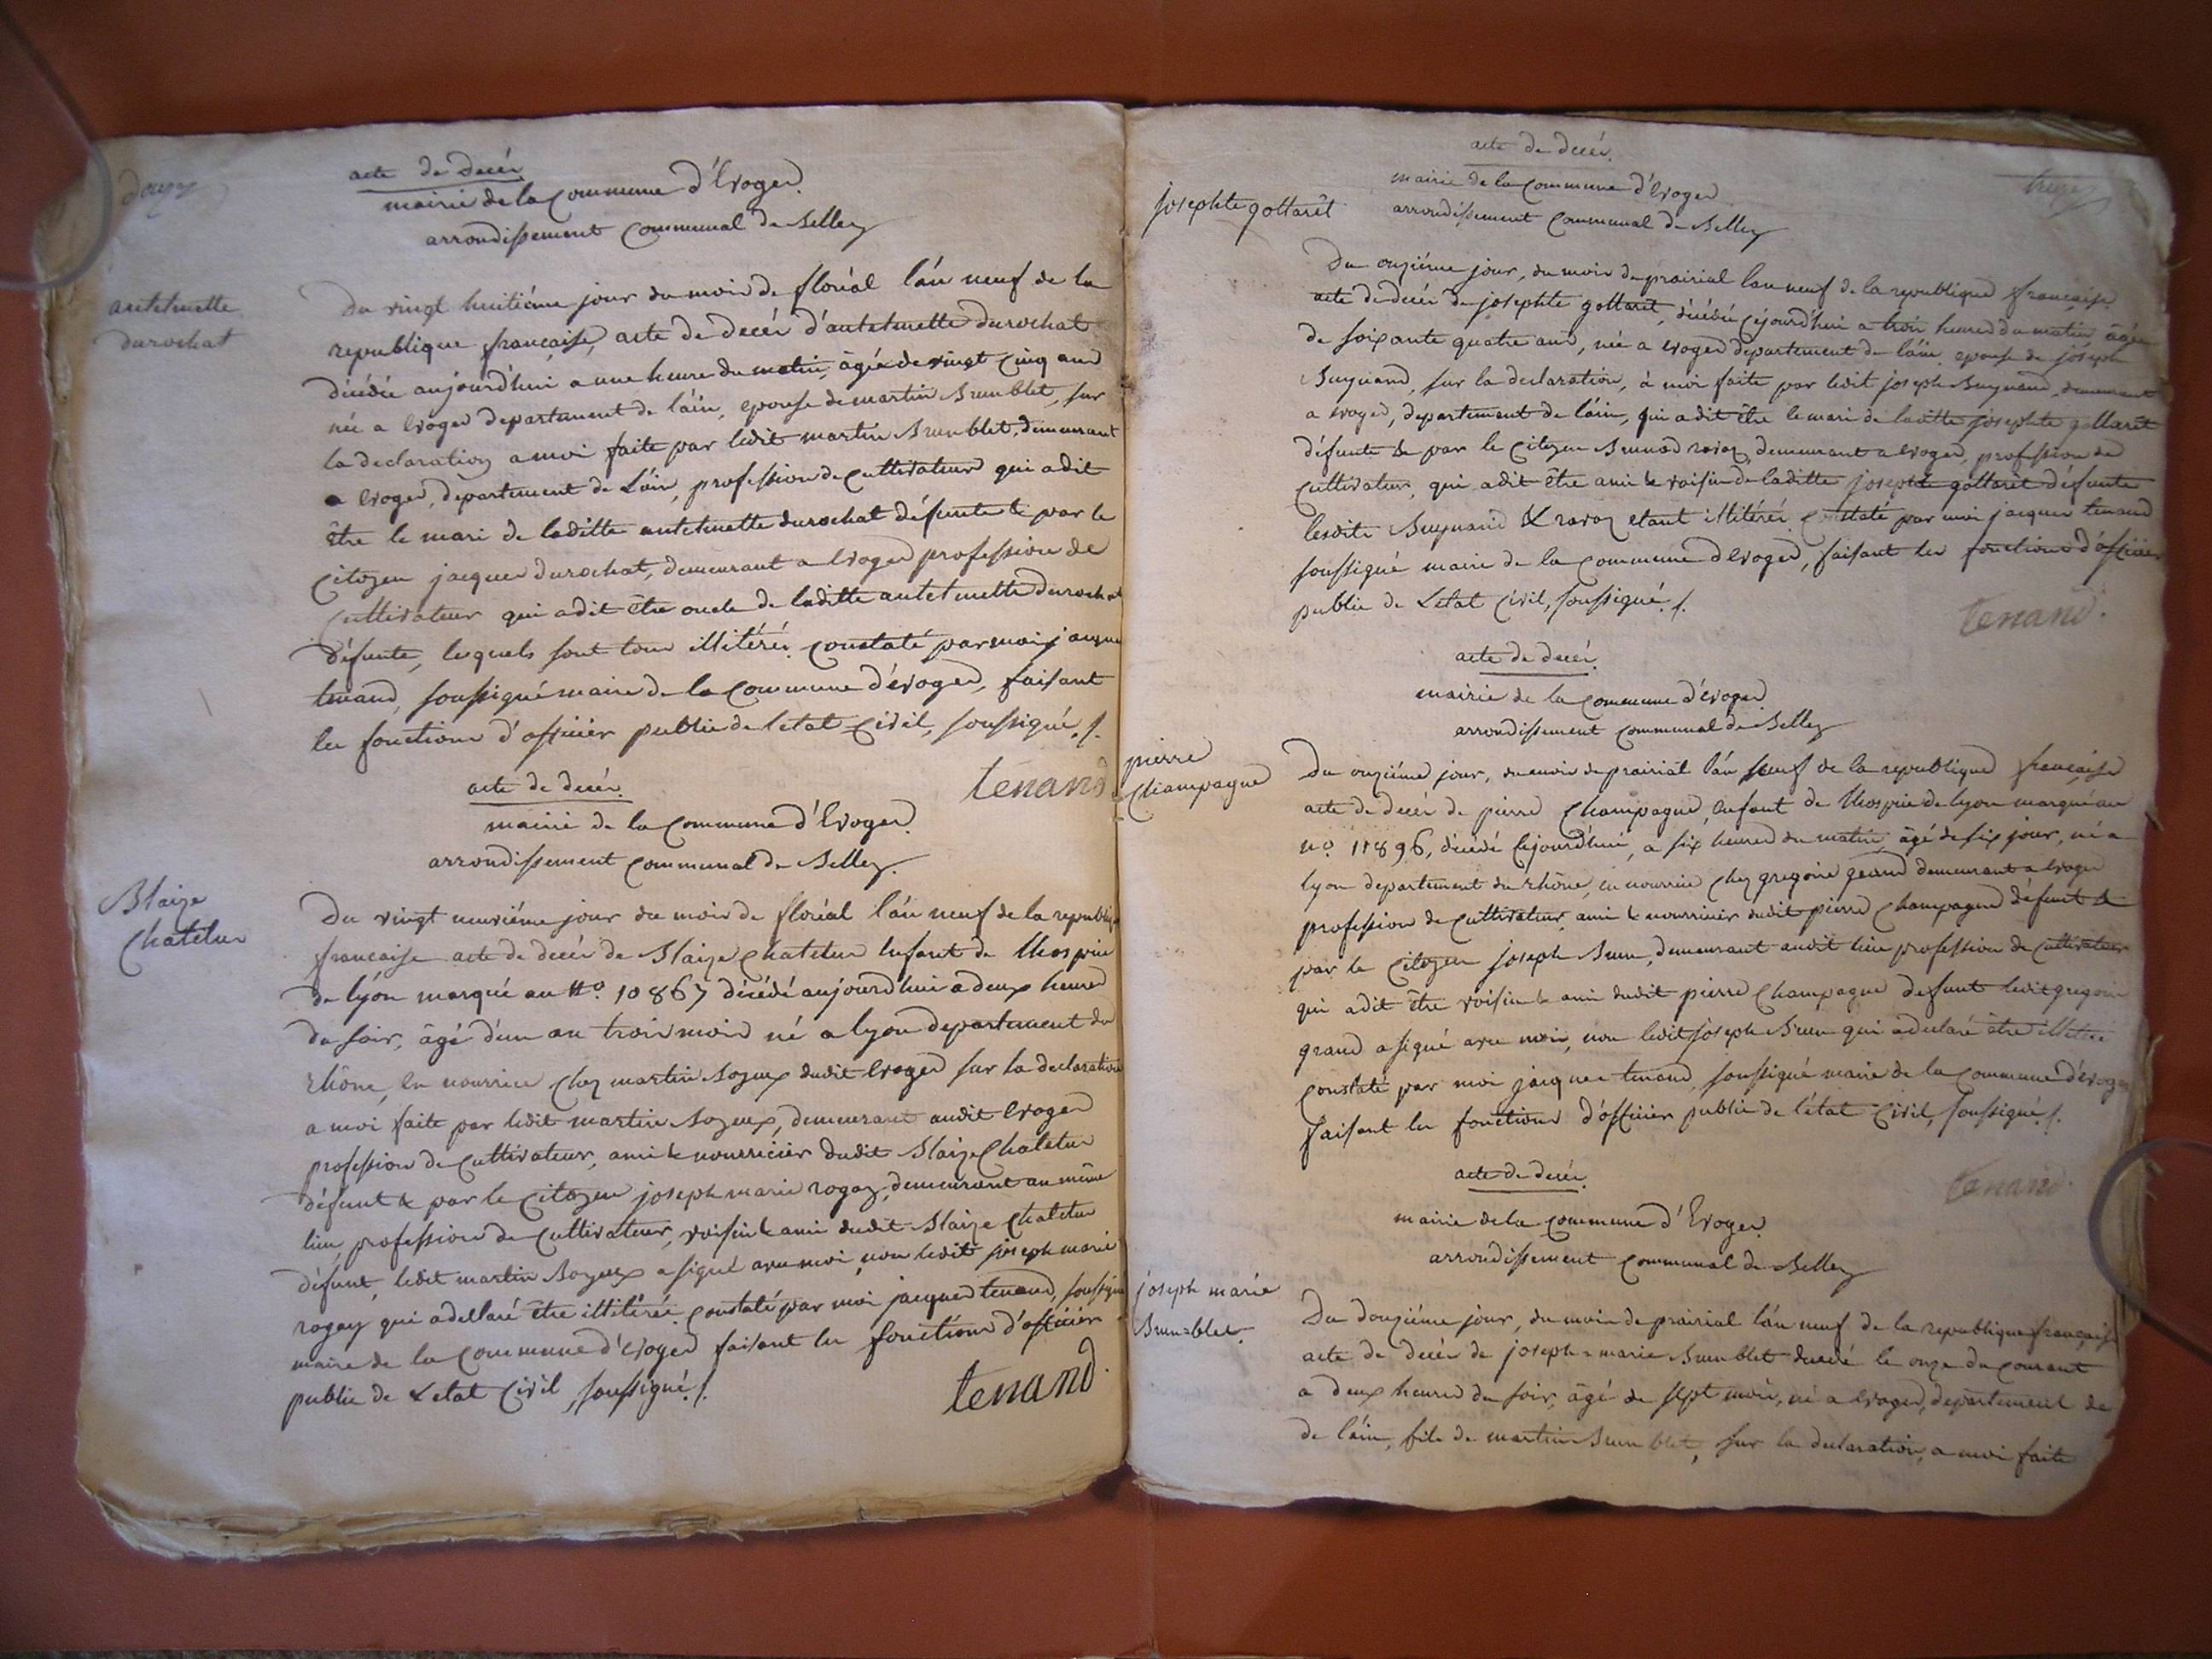 douze
acte de decés
mairie de la commune d'Evoges
arrondissement communal de Belley
antelmette
durochat
Du vingt huitiéme jour du mois de floréal l'an neuf de la
republique française, acte de decés d'antelmette durochat
décédée aujourd'hui a une heure du matin, âgée de vingt cinq ans
née a Evoges departement de l'ain, epouse de martin Brun blet, sur
la declaration a moi faite par ledit martin Brun blet, demeurant
a Evoges, departement de L'ain, profession de cultivateur qui a dit
être le mari de laditte antelmette durochat défunte & par le
Citoyen jacques durochat, demeurant a Evoges profession de
Cultivateur qui a dit être oncle de laditte antelmette durochat
défunte, lesquels sont tous illitérés. constaté par moi jacques
tenand, soussigné maire de la commune d'évoges, faisant
les fonctions d'officier public de l'etat civil, soussigné ./.
tenand
acte de decés.
mairie de la commune d'Evoges.
arrondissement communal de Belley.
Blaize
Chatelus
Du vingt neuviéme jour du mois de floréal l'an neuf de la republique
française acte de decés de Blaize Chatelus Enfant de l'hospice
de lyon marqué au No. 10867 décédé aujourdhui a deux heures
du soir, âgé d'un an trois mois né a lyon departement du
rhône, en nourrice chez martin Bozeux dudit Evoges sur la declaration
a moi faite par ledit martin Bozeux, demeurant audit Evoges
profession de cultivateur, ami & nourricier dudit Blaize Chatelus
défunt & par le Citoyen joseph marie rogay, demeurant au même
lieu, profession de cultivateur, voisin & ami dudit Blaize Chatelus
défunt, ledit martin Bozeux a signé avec moi, non ledit joseph marie
rogay qui a déclaré être illitéré. constaté par moi jacques tenand, soussigné
maire de la commune d'évoges faisant les fonctions d'officier
public de L'etat Civil, soussigné ./.
tenand.
treize
acte de decés.
mairie de la commune d'Evoges
arrondissement communal de Belley
josephte gottaret
Du onziéme jour, du mois de prairial l'an neuf de la republique française
acte de decés de josephte gottaret, décédée cejourd'hui a trois heures du matin, âgée
de soixante quatre ans, née a Evoges departement de l'ain, epouse de joseph
Buynand, sur la declaration, à moi faite par ledit joseph Buynand, demeurant
a Evoges, departement de l'ain, qui a dit être le mari de laditte josephte gottaret
défunte & par le Citoyen ravoz, demeurant a Evoges, profession de
cultivateur, qui a dit être ami & voisin de laditte josephte gottaret défunte
lesdits Buynand & ravoz etant illitérés. constaté par moi jacques tenand
soussigné maire de la commune d'Evoges, faisant les fonctions d'officier
public de L'etat Civil, soussigné ./.
tenand.
acte de decés.
mairie de la commune d'évoges
arrondissement communal de Belley
pierre
Champagne
Du onziéme jour, du mois de prairial l'an neuf de la republique française
acte de decés de pierre Champagne, Enfant de l'hospice de lyon marqué au
no. 11896, décédé cejourd'hui, a six heures du matin, âgé de six jour, né a
lyon departement du rhône, en nourrice chez gregoire grand demeurant a Evoges
profession de cultivateur, ami & nourricier dudit pierre Champagne défunt &
par le Citoyen joseph Brun, demeurant audit lieu profession de cultivateur
qui a dit être voisin & ami dudit pierre Champagne defunt ledit gregoire
grand a signé avec moi, non ledit joseph Brun qui a déclaré être illitéré
constaté par moi jacques tenand, soussigné maire de la commune d'évoges
faisant les fonctions d'officier public de l'état Civil, soussigné ./.
tenand.
acte de decés.
mairie de la commune d'Evoges
arrondissement communal de Belley
joseph marie
Brun=blet.
Du douziéme jour, du mois de prairial l'an neuf de la republique française
acte de decés de joseph=marie Brun blet decedé le onze du courant
a deux heures du soir, âgé de sept mois, né a Evoges, departement de
de l'ain, fils de martin Brun blet, sur la declaration, a moi faite